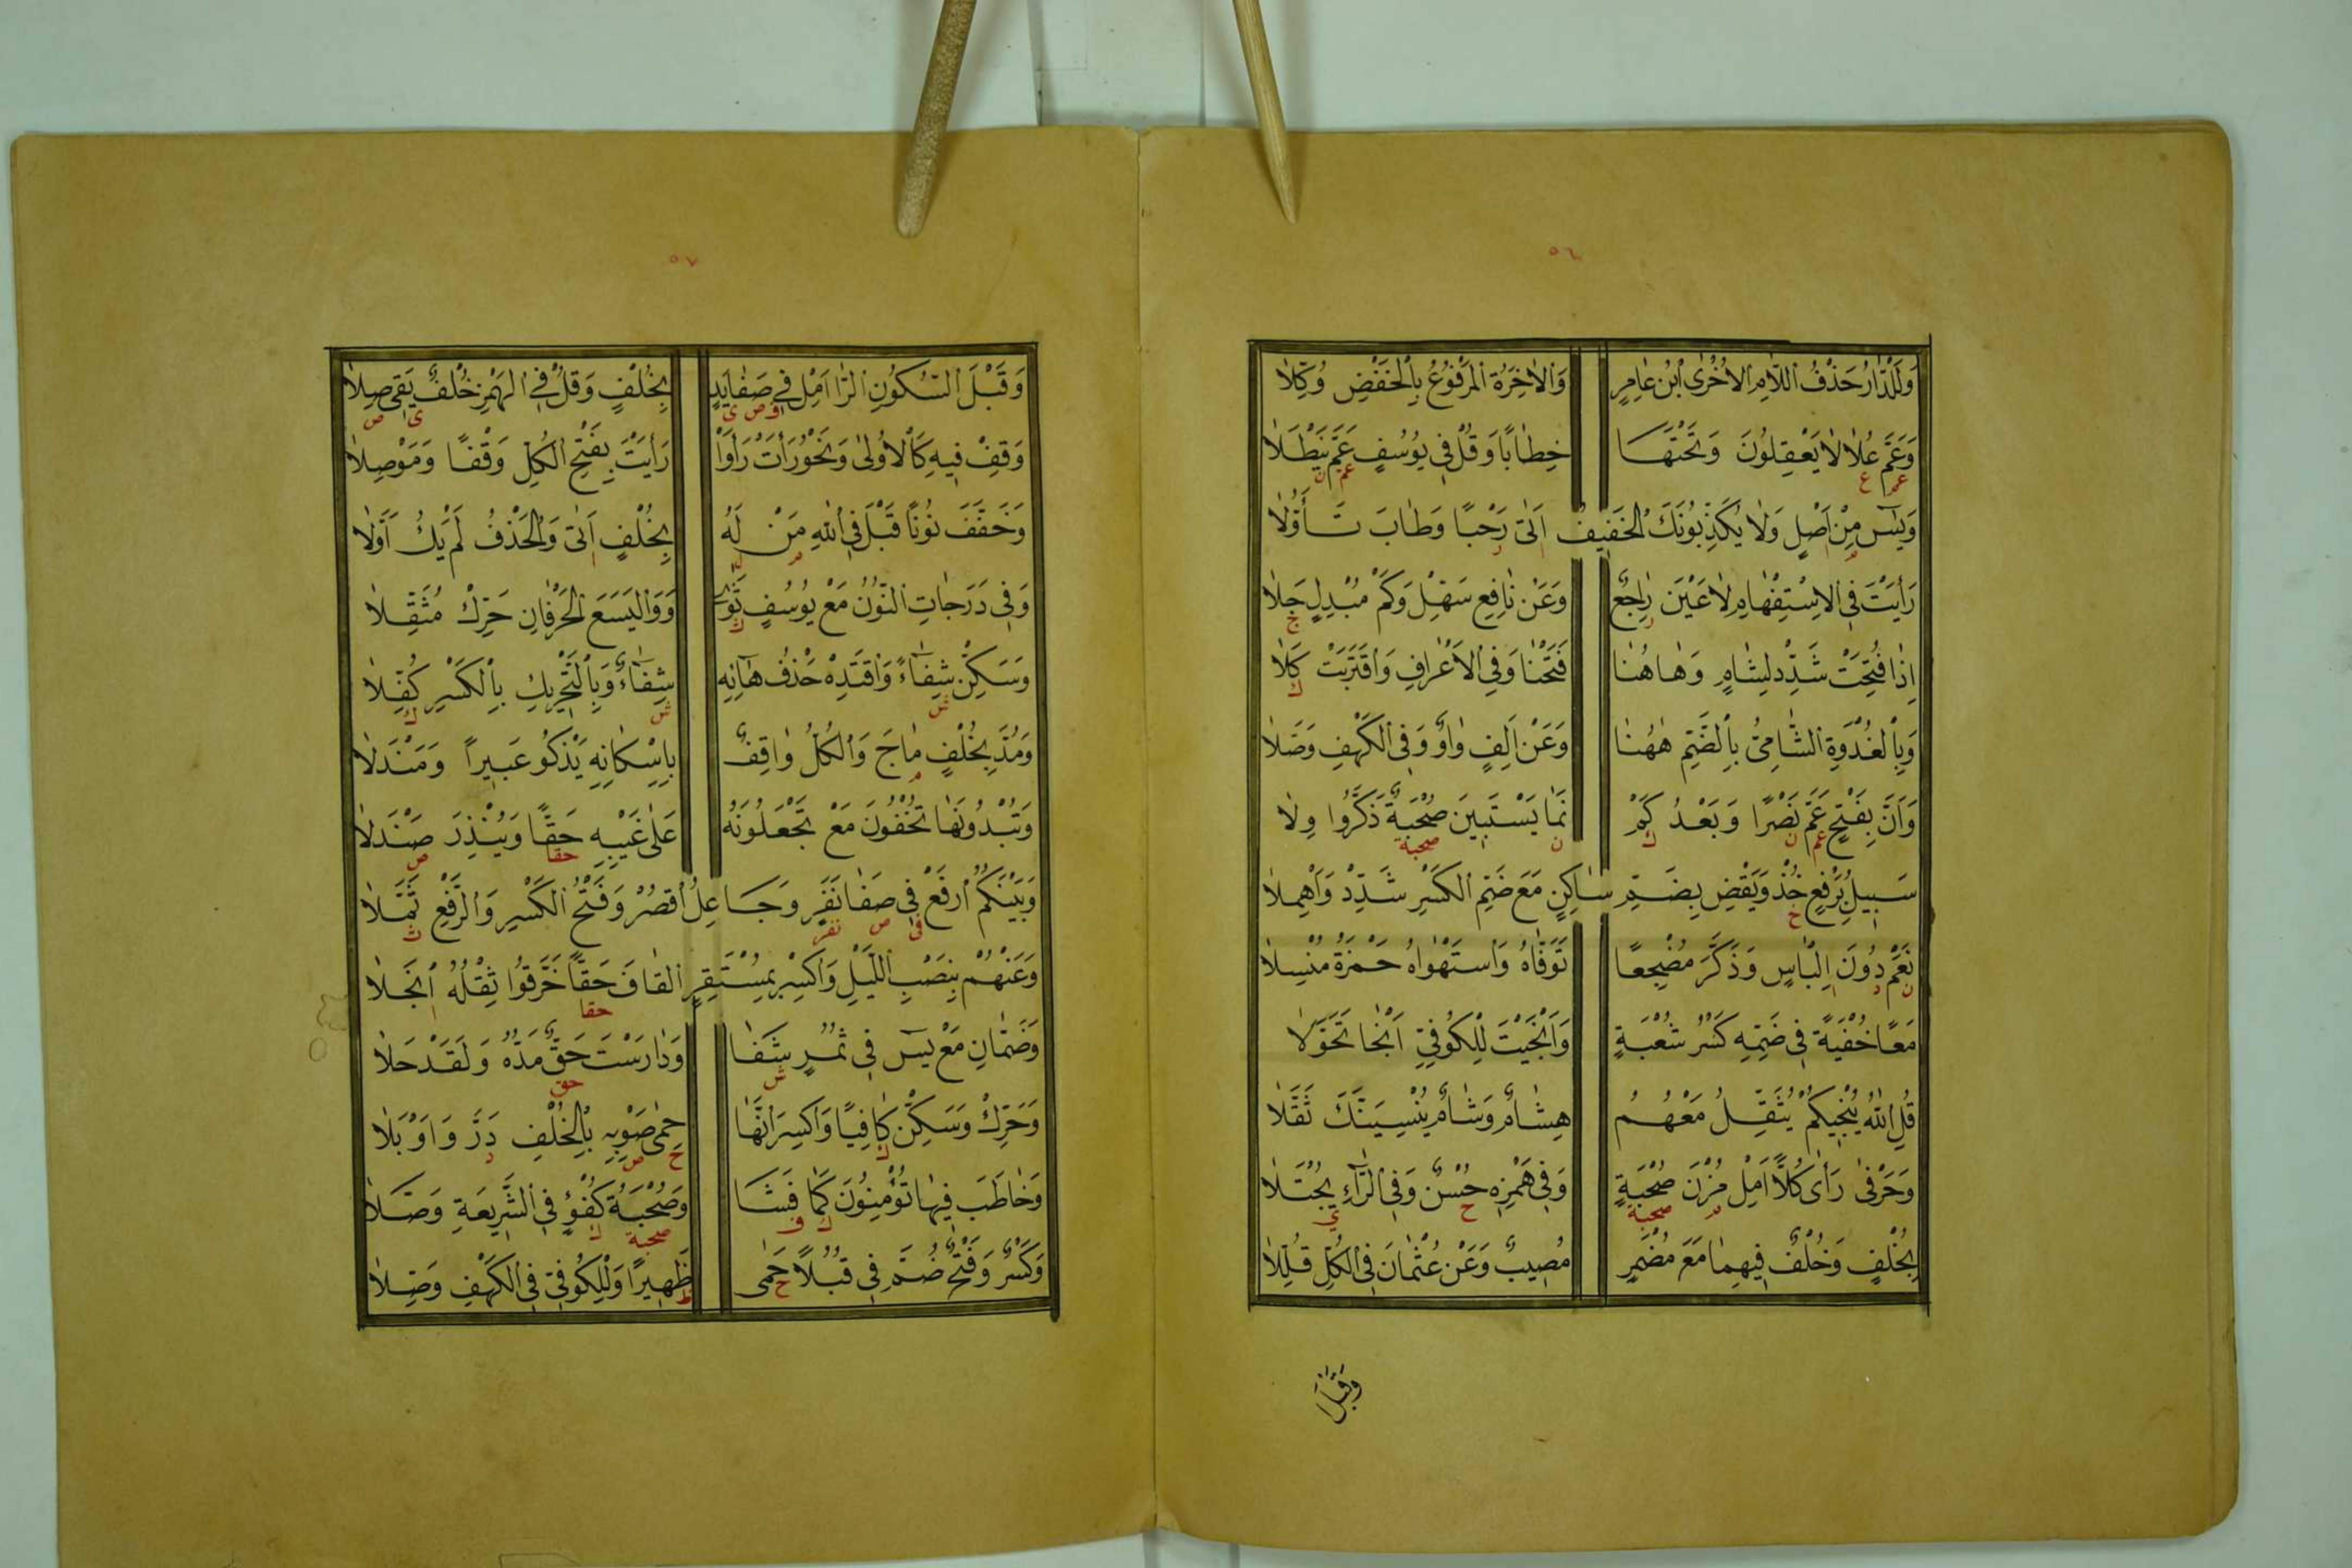 ٥٦
وَلَلدَّارُ حَذْفُ اللَّامِ الْاُخْرٰى ابْنُ عَامِرٍ وَالْاٰخِرَةُ الْمَرْفُوعُ بِالْخَفْضِ وُكِّلَا
وَعَمَّ عُلًا لَا يَعْقِلُونَ وَتَحْتَهَا خِطَابًا وَقُلْ فِي يُوسُفٍ عَمَّ نَيْطَلَا
عم ع عم ن
وَيٰسٓ مِنْ اَصْلٍ وَلَا يُكَذِّبُونَكَ الْخَفِيفُ اَتٰى رَحْبًا وَطَابَ تَأَوُّلَا
م ا ا ر
رَاَيْتَ فِي الْاِسْتِفْهَامِ لَا عَيْنَ رَاجِعٌ وَعَنْ نَافِعٍ سَهِّلْ وَكَمْ مُبْدِلٍ جَلَا
ر ج
اِذَا فُتِحَتْ شَدِّدْ لِشَامٍ وَهَاهُنَا فَتَحْنَا وَفِي الْاَعْرَافِ وَاقْتَرَبَتْ كَلَا
ك
وَبِالْغُدْوَةِ الشَّامِيُّ بِالضَّمِّ هٰهُنَا وَعَنْ اَلِفٍ وَاوٌ وَفِي الْكَهْفِ وَصَّلَا
وَاَنَّ بِفَتْحٍ عَمَّ نَصْرًا وَبَعْدُ كَمْ نَمَا يَسْتَبِينَ صُحْبَةٌ ذَكَّرُوا وِلَا
عم ن ك ن صحبة
سَبِيلُ بِرَفْعٍ خُذْ وَيَقْضِ بِضَمِّ سَاكِنٍ مَعَ ضَمِّ الْكَسْرِ شَدِّدْ وَاَهْمِلَا
خ
نَعَمْ دُونَ اِلْبَاسٍ وَذَكَّرَ مُضْجِعًا تَوَفَّاهُ وَاسْتَهْوَاهُ حَمْزَةُ مُنْسِلَا
ن د ا
مَعًا خُفْيَةً فِي ضَمِّهِ كَسْرُ شُعْبَةٍ وَاَنْجَيْتَ لِلْكُوفِيِّ اَنْجَا تَحَوَّلَا
قُلِ اللّٰهُ يُنْجِيكُمْ يُثَقِّلُ مَعْهُمُ هِشَامٌ وَشَامٍ يُنْسِيَنَّكَ ثَقَّلَا
وَحَرْفَيْ رَاٰى كُلًّا اَمِلْ مُزْنَ صُحْبَةٍ وَفِي هَمْزِهِ حُسْنٌ وَفِي الرَّاءِ يُجْتَلَا
م صحبة ح ي
بِخُلْفٍ وَخُلْفٌ فِيهِمَا مَعَ مُضْمَرٍ مُصِيبٌ وَعَنْ عُثْمَانَ فِي الْكُلِّ قُلِّلَا
وَقَبْلَ ا
٥٧
وَقَبْلَ السُّكُونِ الرَّا اَمِلْ فِي صَفَا يَدٍ بِخُلْفٍ وَقُلْ فِي الْهَمْزِ خُلْفٌ يَقِي صِلَا
ف ص ي ي ص
وَقِفْ فِيهِ كَالْاُولٰى وَنَحْوُ رَاَتْ رَاَوْا رَاَيْتَ بِفَتْحِ الْكُلِّ وَقْفًا وَمَوْصِلَا
وَخَفَّفَ نُونًا قَبْلَ فِي اللّٰهِ مَنْ لَهُ بِخُلْفٍ اَتٰى وَالْحَذْفُ لَمْ يَكُ اَوَّلَا
م ل ا
وَفِي دَرَجَاتِ النُّونُ مَعْ يُوسُفٍ ثَوٰى وَوَالْيَسَعَ الْحَرْفَانِ حَرِّكْ مُثَقِّلَا
ث
وَسَكِّنْ شِفَاءً وَاقْتَدِهْ حَذْفُ هَائِهِ شِفَاءٌ وَبِالتَّحْرِيكِ بِالْكَسْرِ كُفِّلَا
ش ش ك
وَمُدَّ بِخُلْفٍ مَاجَ وَالْكُلُّ وَاقِفٌ بِاِسْكَانِهِ يَذْكُو عَبِيرًا وَمَنْدَلَا
م
وَتُبْدُونَهَا تُخْفُونَ مَعْ تَجْعَلُونَهُ عَلٰى غَيْبِهِ حَقًّا وَيُنْذِرَ صَنْدَلَا
حقا ص
وَبَيْنَكُمُ ارْفَعْ فِي صَفَا نَفَرٍ وَجَاعِلُ اقْصُرْ وَفَتْحُ الْكَسْرِ وَالرَّفْعِ ثُمِّلَا
فى ص نفر ث
وَعَنْهُمْ بِنَصْبِ اللَّيْلِ وَاكْسِرْ بِمُسْتَقِرٍ الْقَافَ حَقًّا خَرَّقُوا ثِقْلُهُ انْجَلَا
حقا ا
وَضَمَّانِ مَعْ يٰسٓ فِي ثُمُرٍ شَفَا وَدَارَسْتَ حَقٌّ مَدُّهُ وَلَقَدْ حَلَا
ش حق
وَحَرِّكْ وَسَكِّنْ كَافِيًا وَاكْسِرَ انَّهَا حِمٰى صَوْبِهِ بِالْخُلْفِ دَرَّ وَاَوْبَلَا
ك ح ص د
وَخَاطَبَ فِيهَا تُؤْمِنُونَ كَمَا فَشَا وَصُحْبَةُ كُفْؤٍ فِي الشَّرِيعَةِ وَصَّلَا
ك ف صحبة ك
وَكَسْرٌ وَفَتْحٌ ضُمَّ فِي قُبُلًا حَمٰى ظَهِيرًا وَلِلْكُوفِيِّ فِي الْكَهْفِ وُصِّلَا
ح ظ